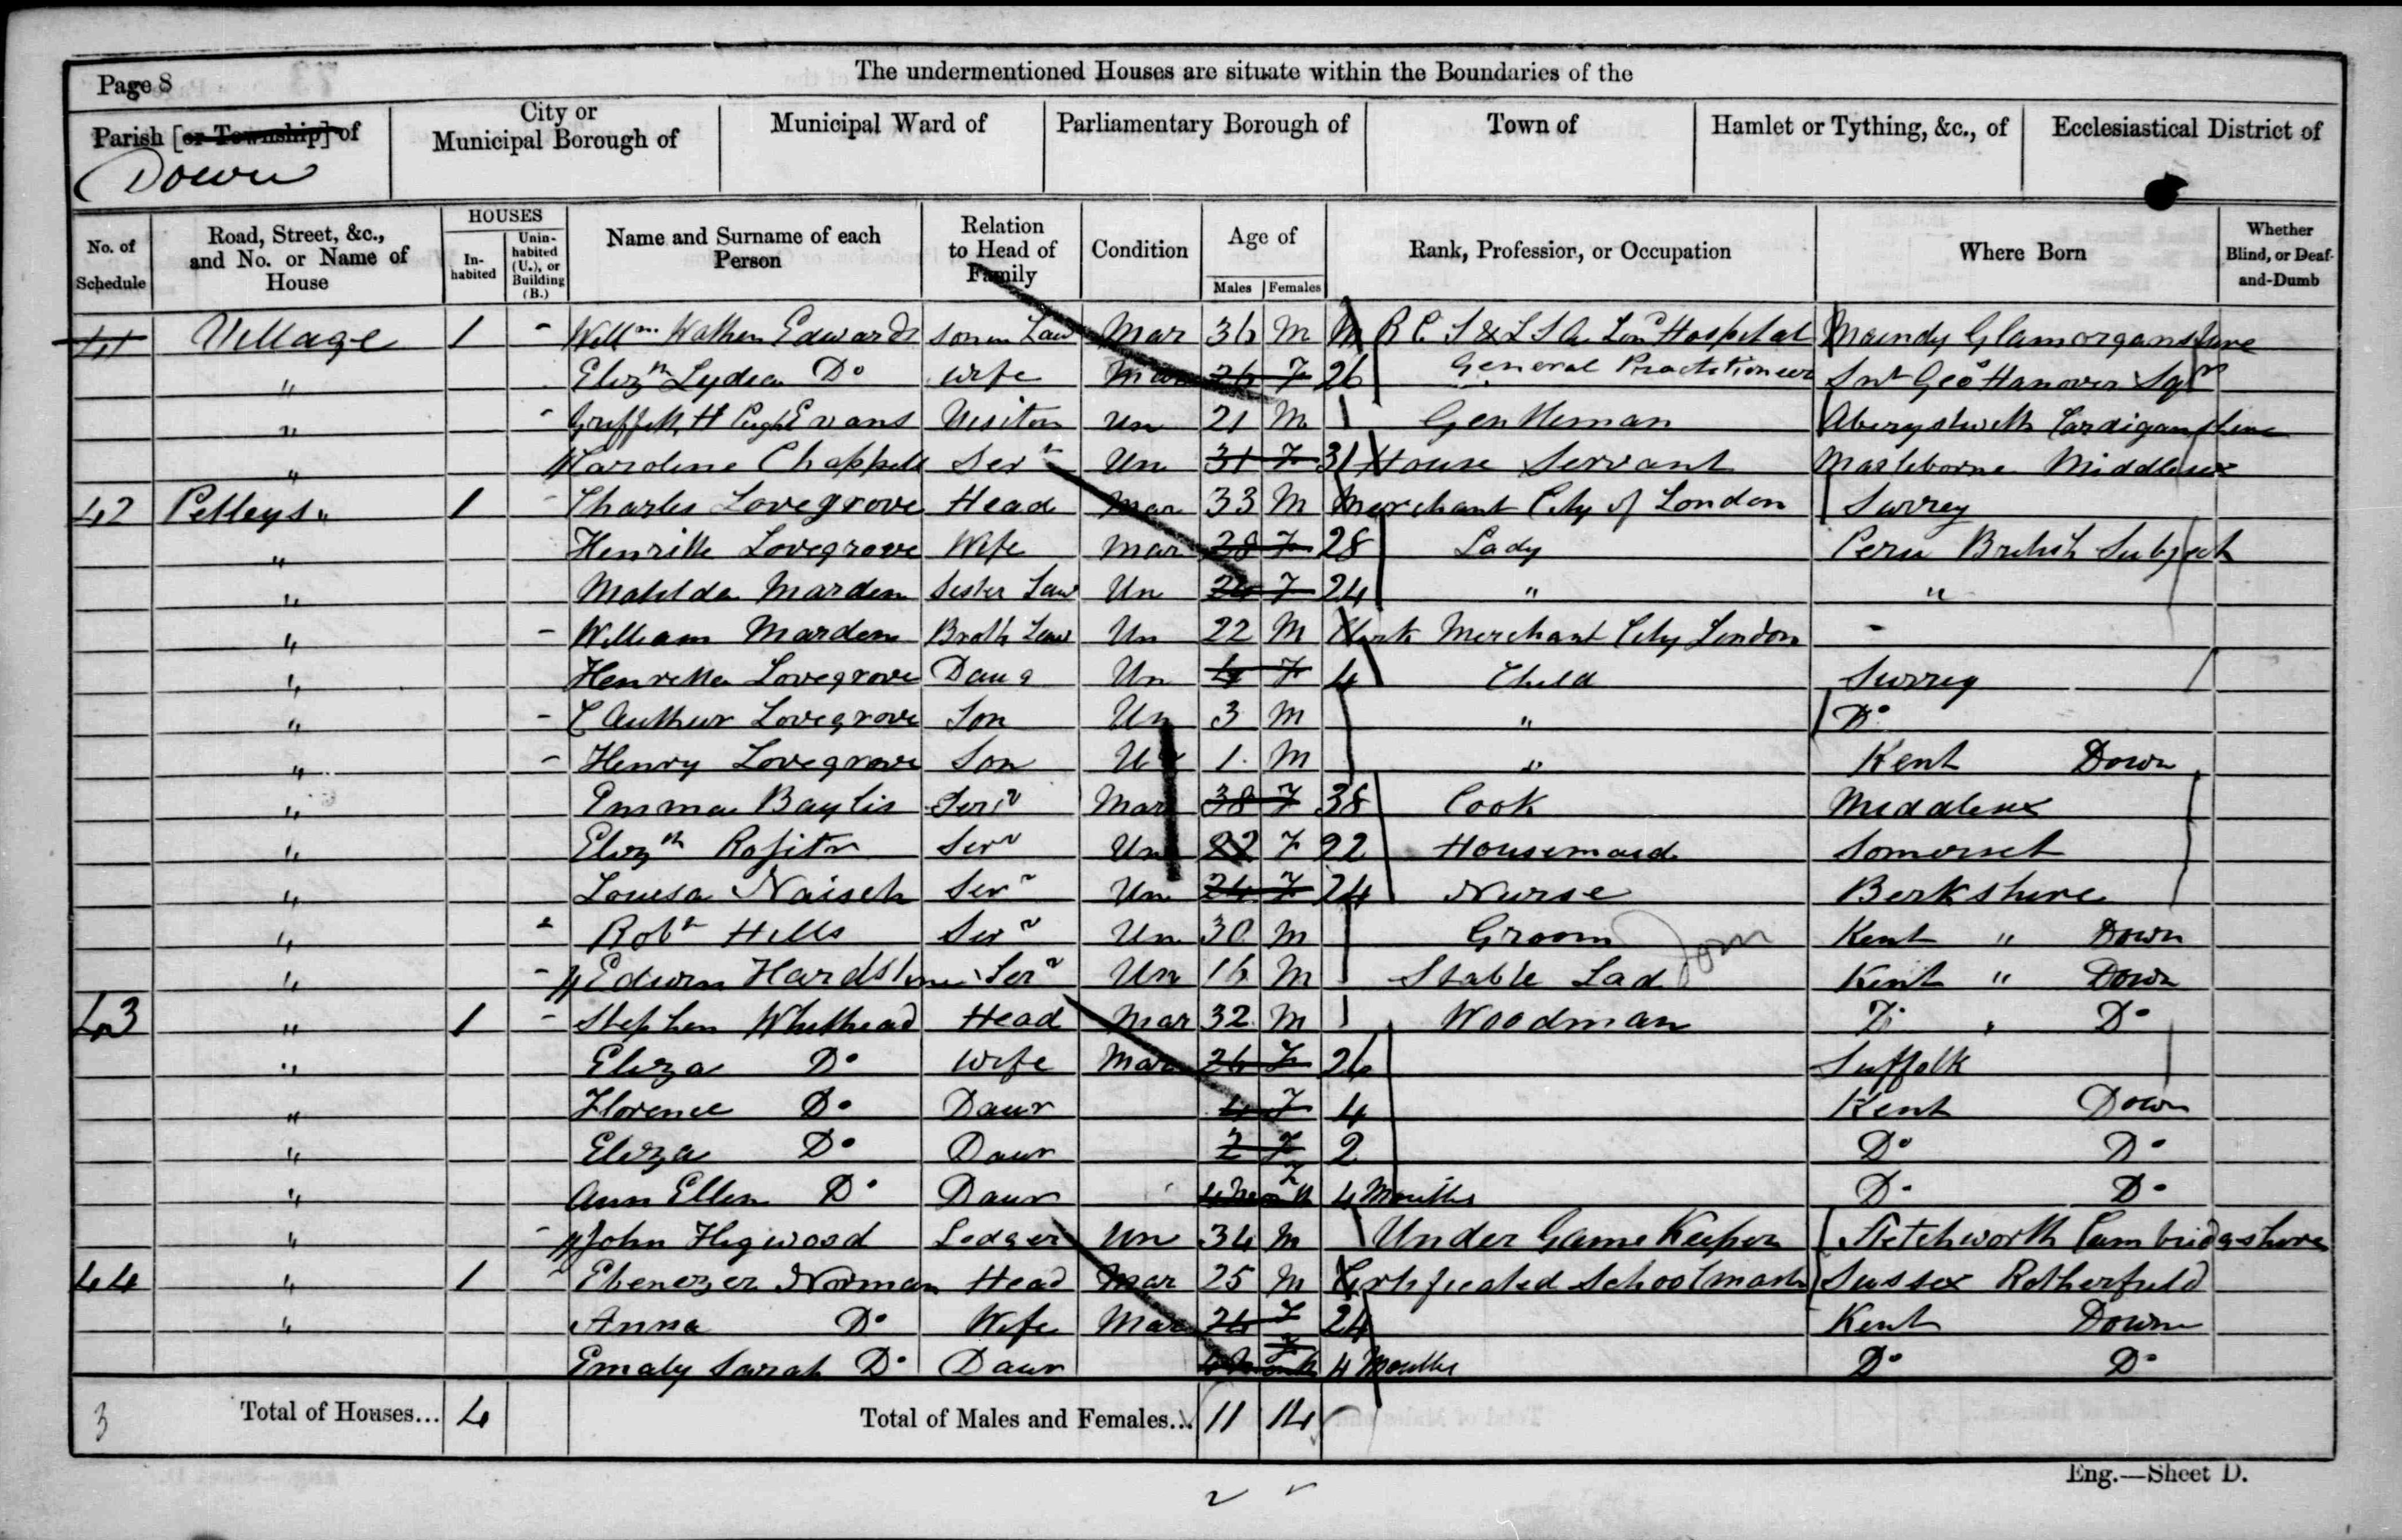 Page 8
The undermentioned Houses are situate within the Boundaries of the
Parish [or Township] of
Down
City or Municipal Borough of
Municipal Ward of
Parliamentary Borough of
Town of
Hamlet or Tything, &c., of
Ecclesiastical District of
No. of Schedule
Road, Street, &c., and No. or Name of House
HOUSES
In-habited
Unin-habited (U.), or Building (B.)
Name and Surname of each Person
Relation to Head of Family
Condition
Age of
Males
Females
Rank, Profession, or Occupation
Where Born
Whether Blind, or Deaf-and-Dumb
41 Village 1 - Willm. Wathen Edwards Son in Law Mar 36 M M R C S & L S A Lond Hospital Maindy Glamorganshire
" Elizth Lydia Do Wife Mar 26 F 26 General Practitioner Snt Geo Hanover Sqr
" - Griffith H Pugh Evans Visitor Un 21 M Gentleman Aberystwith Cardiganshire
" Caroline Chappell Serv Un 31 F 31 House Servant Middlesex
42 Petleys " 1 - Charles Lovegrove Head Mar 33 M Merchant City of London Surrey
" Henritte Lovegrove Wife Mar 28 F 28 Lady Peru British Subject
" Matilda Marden Sister Law Un 24 F 24 " "
" - William Marden Broth Law Un 22 M Clerk Merchant City London -
" Henretta Lovegrove Daug Un 4 F 4 Child Surrey
" - C Authur Lovegrove Son Un 3 M " Do
" - Henry Lovegrove Son Un 1 M " Kent Down
" Emma Baylis Serv Mar 38 F 38 Cook Middlesex
" Elizth Serv Un 22 F 22 Housemaid Somerset
" Louisa Naisch Serv Un 24 F 24 Nurse Berkshire
" - Robt Hills Serv Un 30 M Groom Kent " Down
" - Edwin Hardstone Serv Un 16 M Stable Lad Kent " Down
43 " 1 - Stephen Whithead Head Mar 32 M Woodman Do " Do
" Eliza Do Wife Mar 26 F 26 Suffolk
" Florence Do Daur 4 F 4 Kent Down
" Eliza Do Daur 2 F 2 Do Do
" Ann Ellen Do Daur 4 Month F 4 Months Do Do
" - John Higwood Lodger Un 34 M Under Game Keeper Stetchworth Cambridgshire
44 " 1 - Ebenezer Norman Head Mar 25 M Certificated Schoolmaster Sussex Rotherfield
" Anna Do Wife Mar 24 F 24 Kent Down
Emaly Sarah Do Daur 4 Month F 4 Months Do Do
3 Total of Houses... 4 Total of Males and Females... 11 14
Eng.—Sheet D.